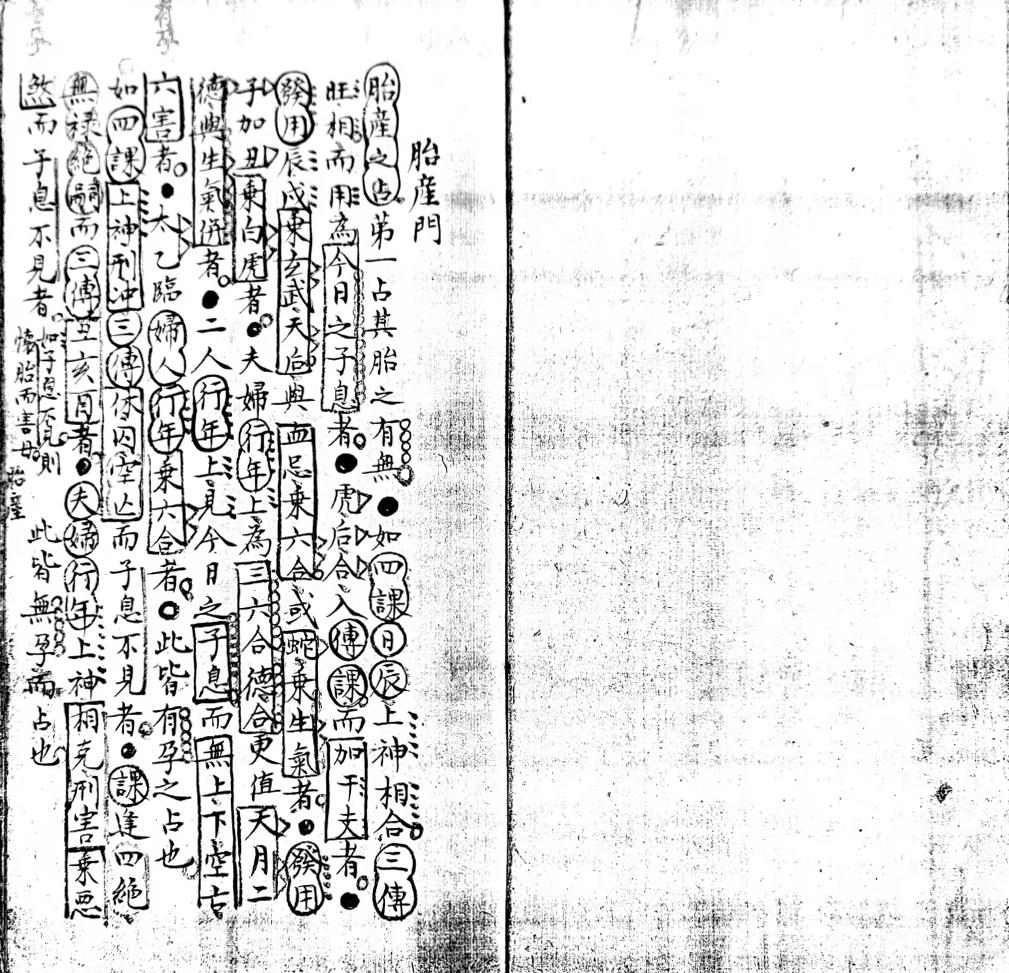 胎産門
胎産之占第一占其胎之有無●如四課日辰上神相合三傳
旺相而用為今日之子息者●虎后合入傳課而加干支者●
發用辰戌乗玄武天后與血忌乗六合或蛇乗生氣者●發用
子加丑乗白虎者●夫婦行年上為三六合德合更值天月二
德與生氣併者●二人行年上見今日之子息而無上下空亡
六害者●太乙臨婦人行年乗六合者●此皆有孕之占也
如四課上神刑冲三傳休囚空亡而子息不見者●課逢四絶
無禄絶嗣而三傳丑亥酉者●夫婦行年上神相克刑害乗悪
煞而子息不見者如子息不見則懐胎而害母 此皆無孕而占也
有孕
胎産